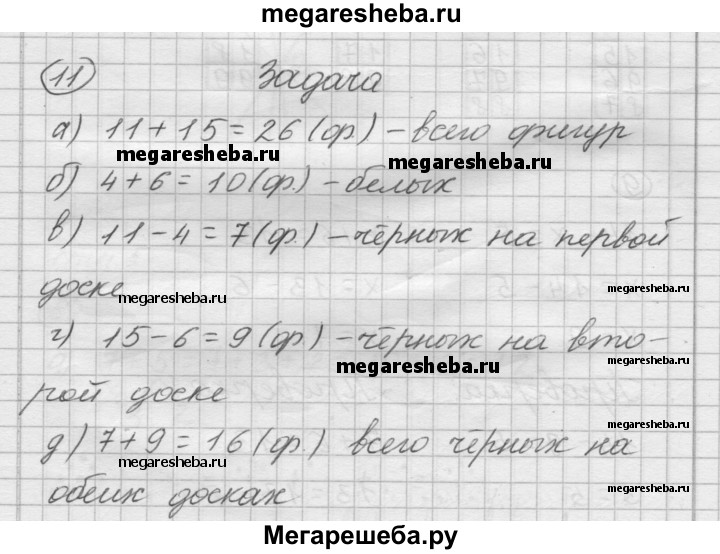 megaresheba.ru
11 Задача
а) 11 + 15 = 26 (ф.) – всего фигур
megaresheba.ru megaresheba.ru
б) 4 + 6 = 10 (ф.) – белых
megaresheba.ru
в) 11 – 4 = 7 (ф.) – чёрных на первой
доске
megaresheba.ru megaresheba.ru
г) 15 – 6 = 9 (ф.) – чёрных на вто-
megaresheba.ru
рой доске
д) 7 + 9 = 16 (ф.) всего чёрных на
megaresheba.ru megaresheba.ru
обеих досках
megaresheba.ru
Мегарешеба.ру